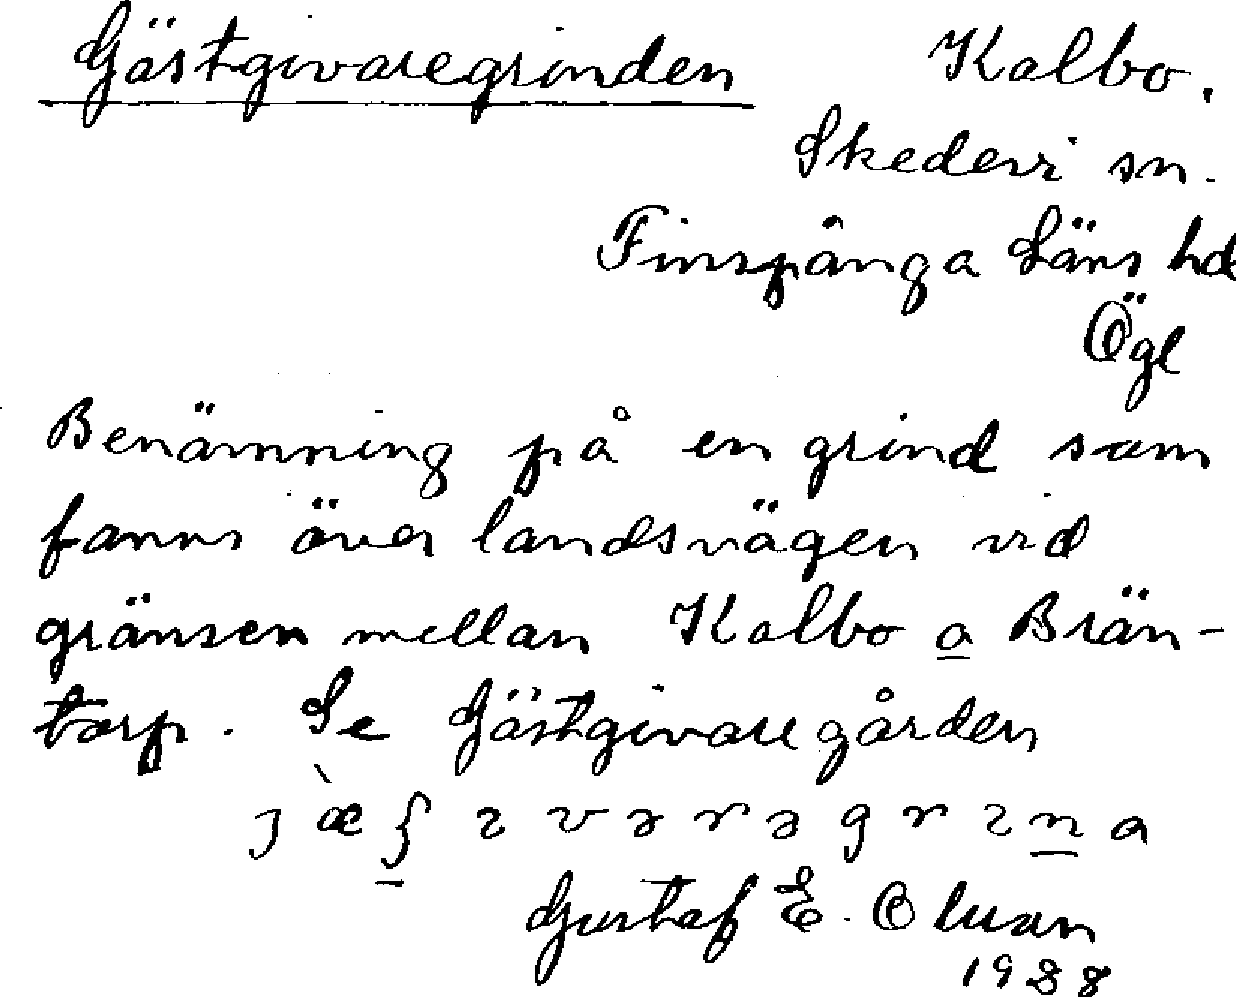 Gästgivaregrinden Kalbo.
Skedevi sn.
Finspånga Läns hd
Ögl
Benämning på en grind som
fanns över landsvägen vid
gränsen mellan Kalbo o Brän-
torp. Se Gästgivaregården
Gustaf E. Olsson
1938